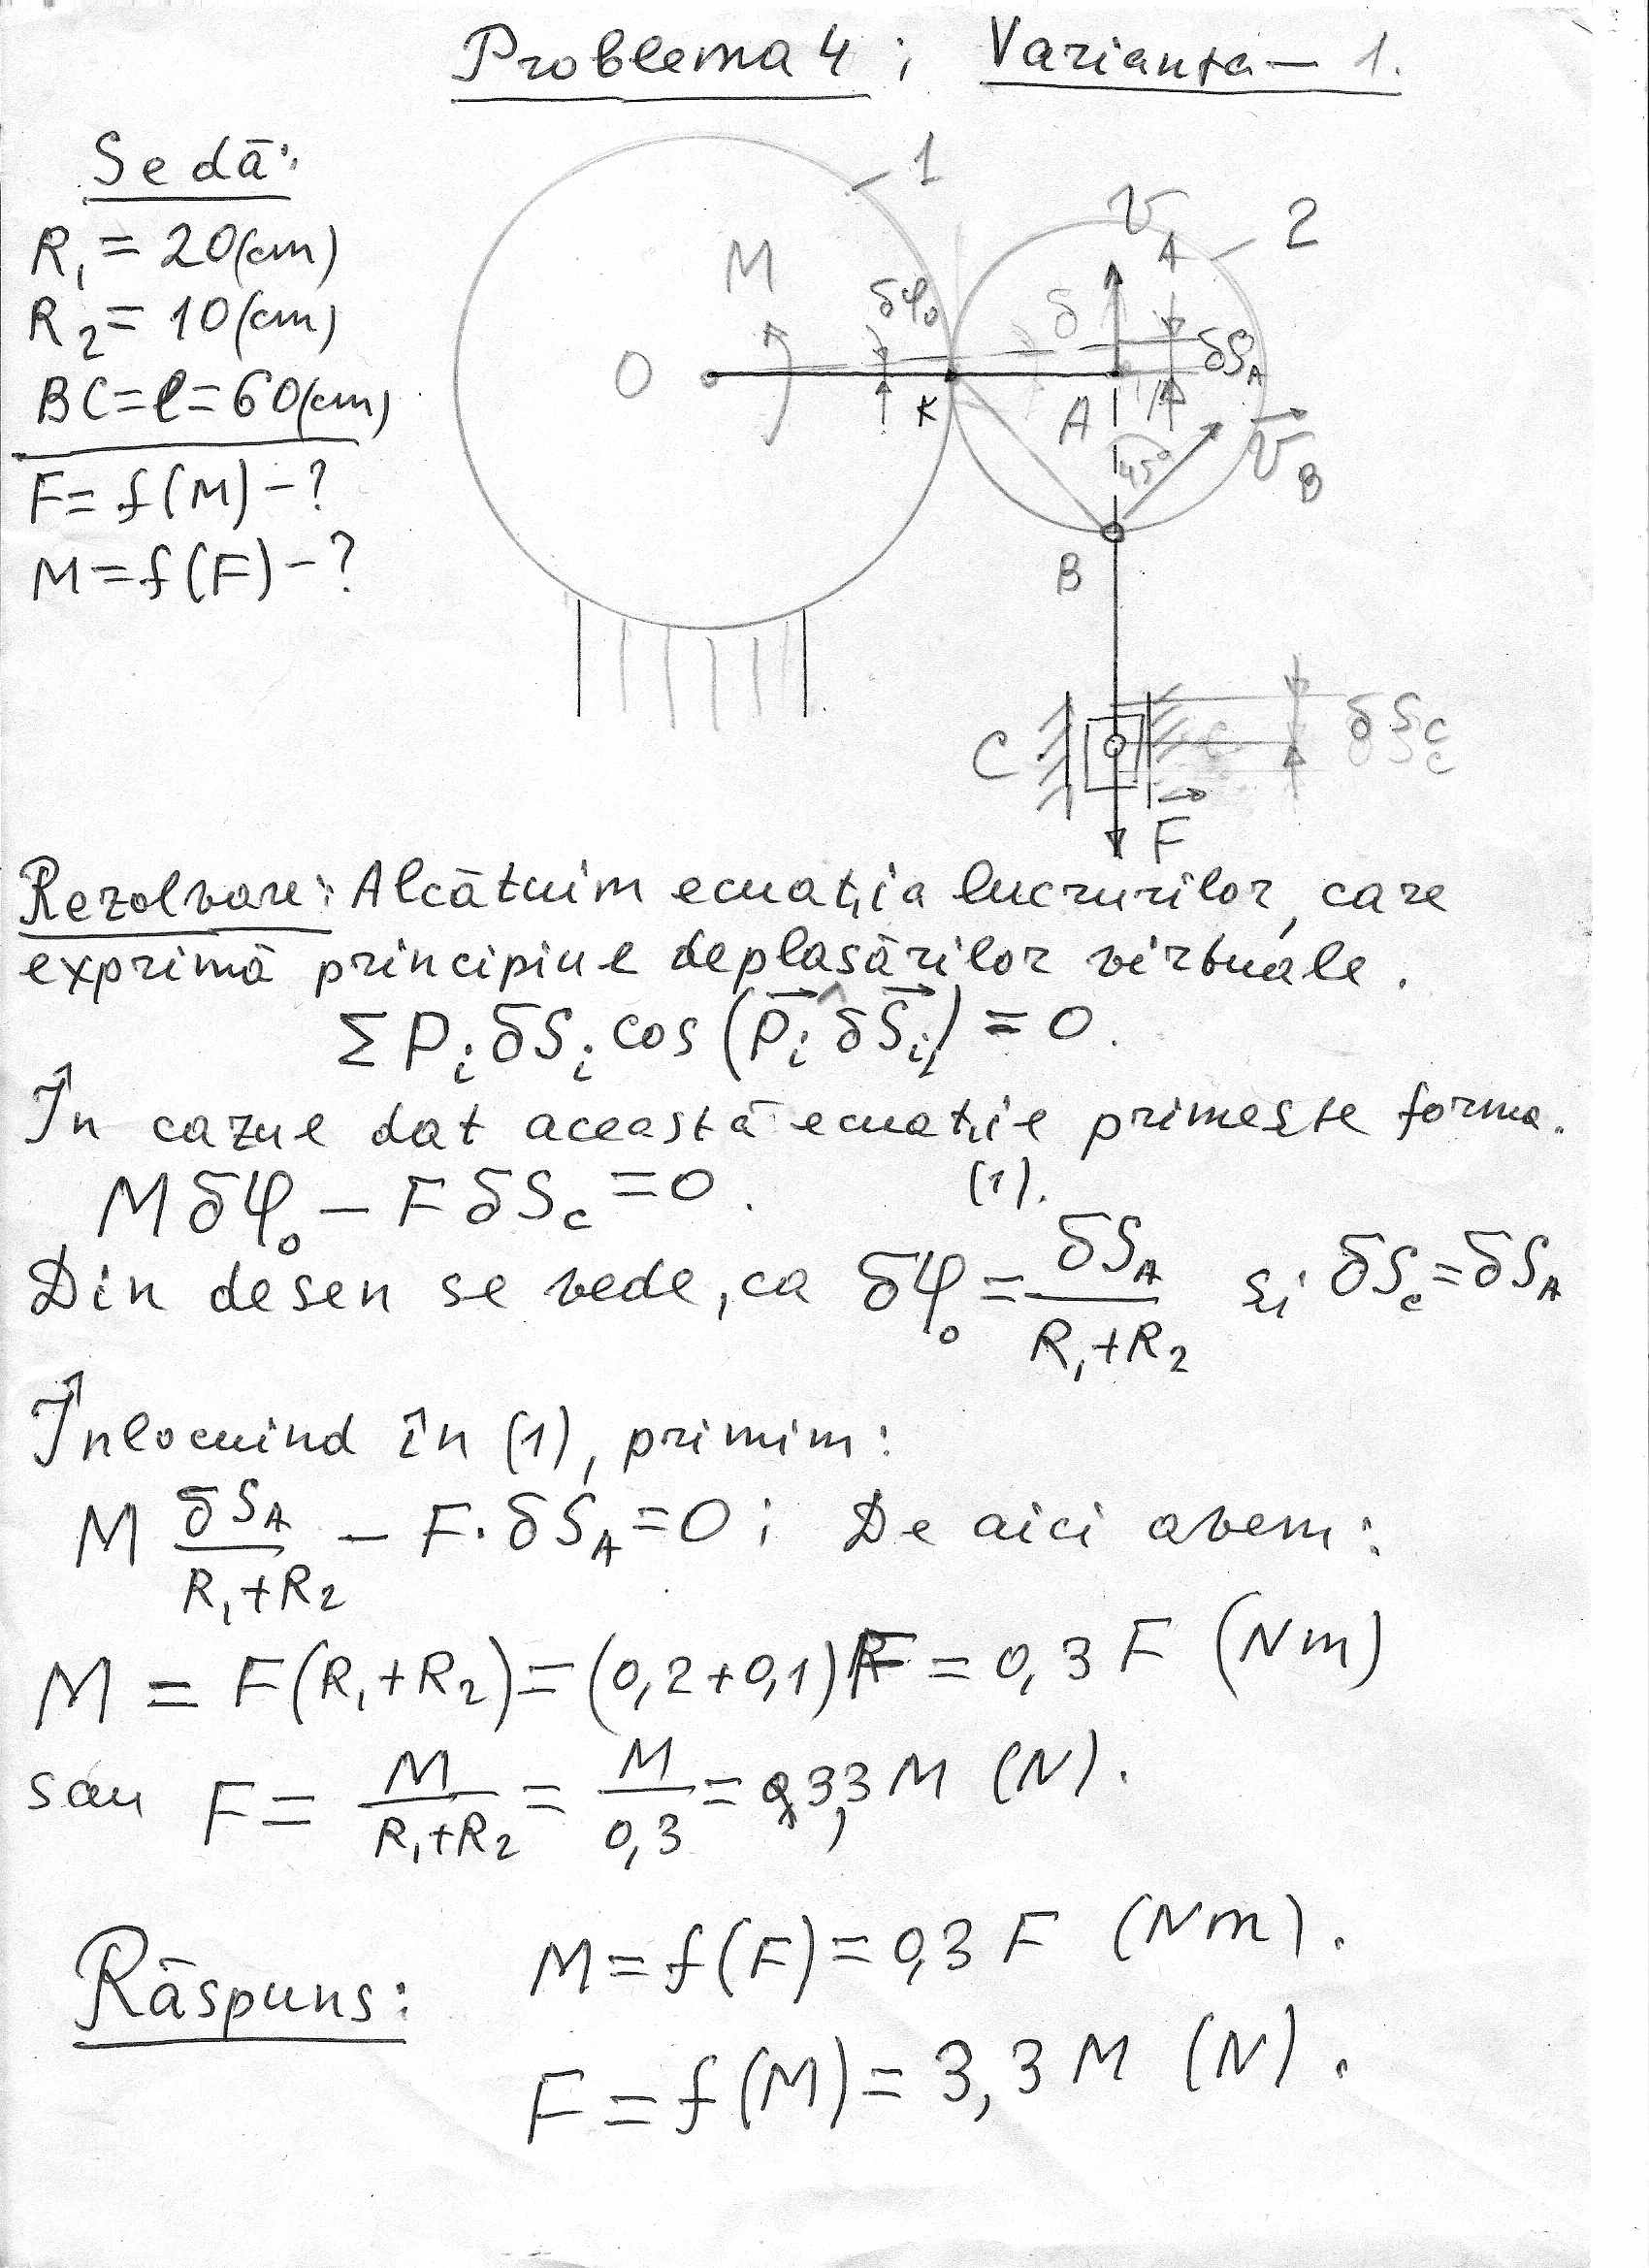 Problema 4; Varianta – 1.
Se dă:
R₁ = 20(cm)
R₂ = 10(cm)
BC=ℓ=60(cm)
F= f(M) –?
M=f(F) –?
1
2
M
O
K
A
B
C
δφ₀
δ
V_A
δS_A
45°
V⃗_B
δS_c
δS_c
F⃗
Rezolvare: Alcătuim ecuația lucrurilor, care
exprimă principiul deplasărilor virtuale.
Σ P_i δS_i cos (P⃗_i ^ δS⃗_i) = 0.
În cazul dat această ecuație primește forma.
M δφ₀ – F δS_c = 0. (1).
Din desen se vede, ca δφ₀ = δS_A / (R₁+R₂) și δS_c = δS_A
Înlocuind în (1), primim:
M δS_A / (R₁+R₂) – F·δS_A = 0; De aici avem:
M = F(R₁+R₂) = (0,2+0,1)F = 0,3 F (Nm)
sau F = M / (R₁+R₂) = M / 0,3 = 3,3 M (N).
Răspuns: M = f(F) = 0,3 F (Nm).
F = f(M) = 3,3 M (N).